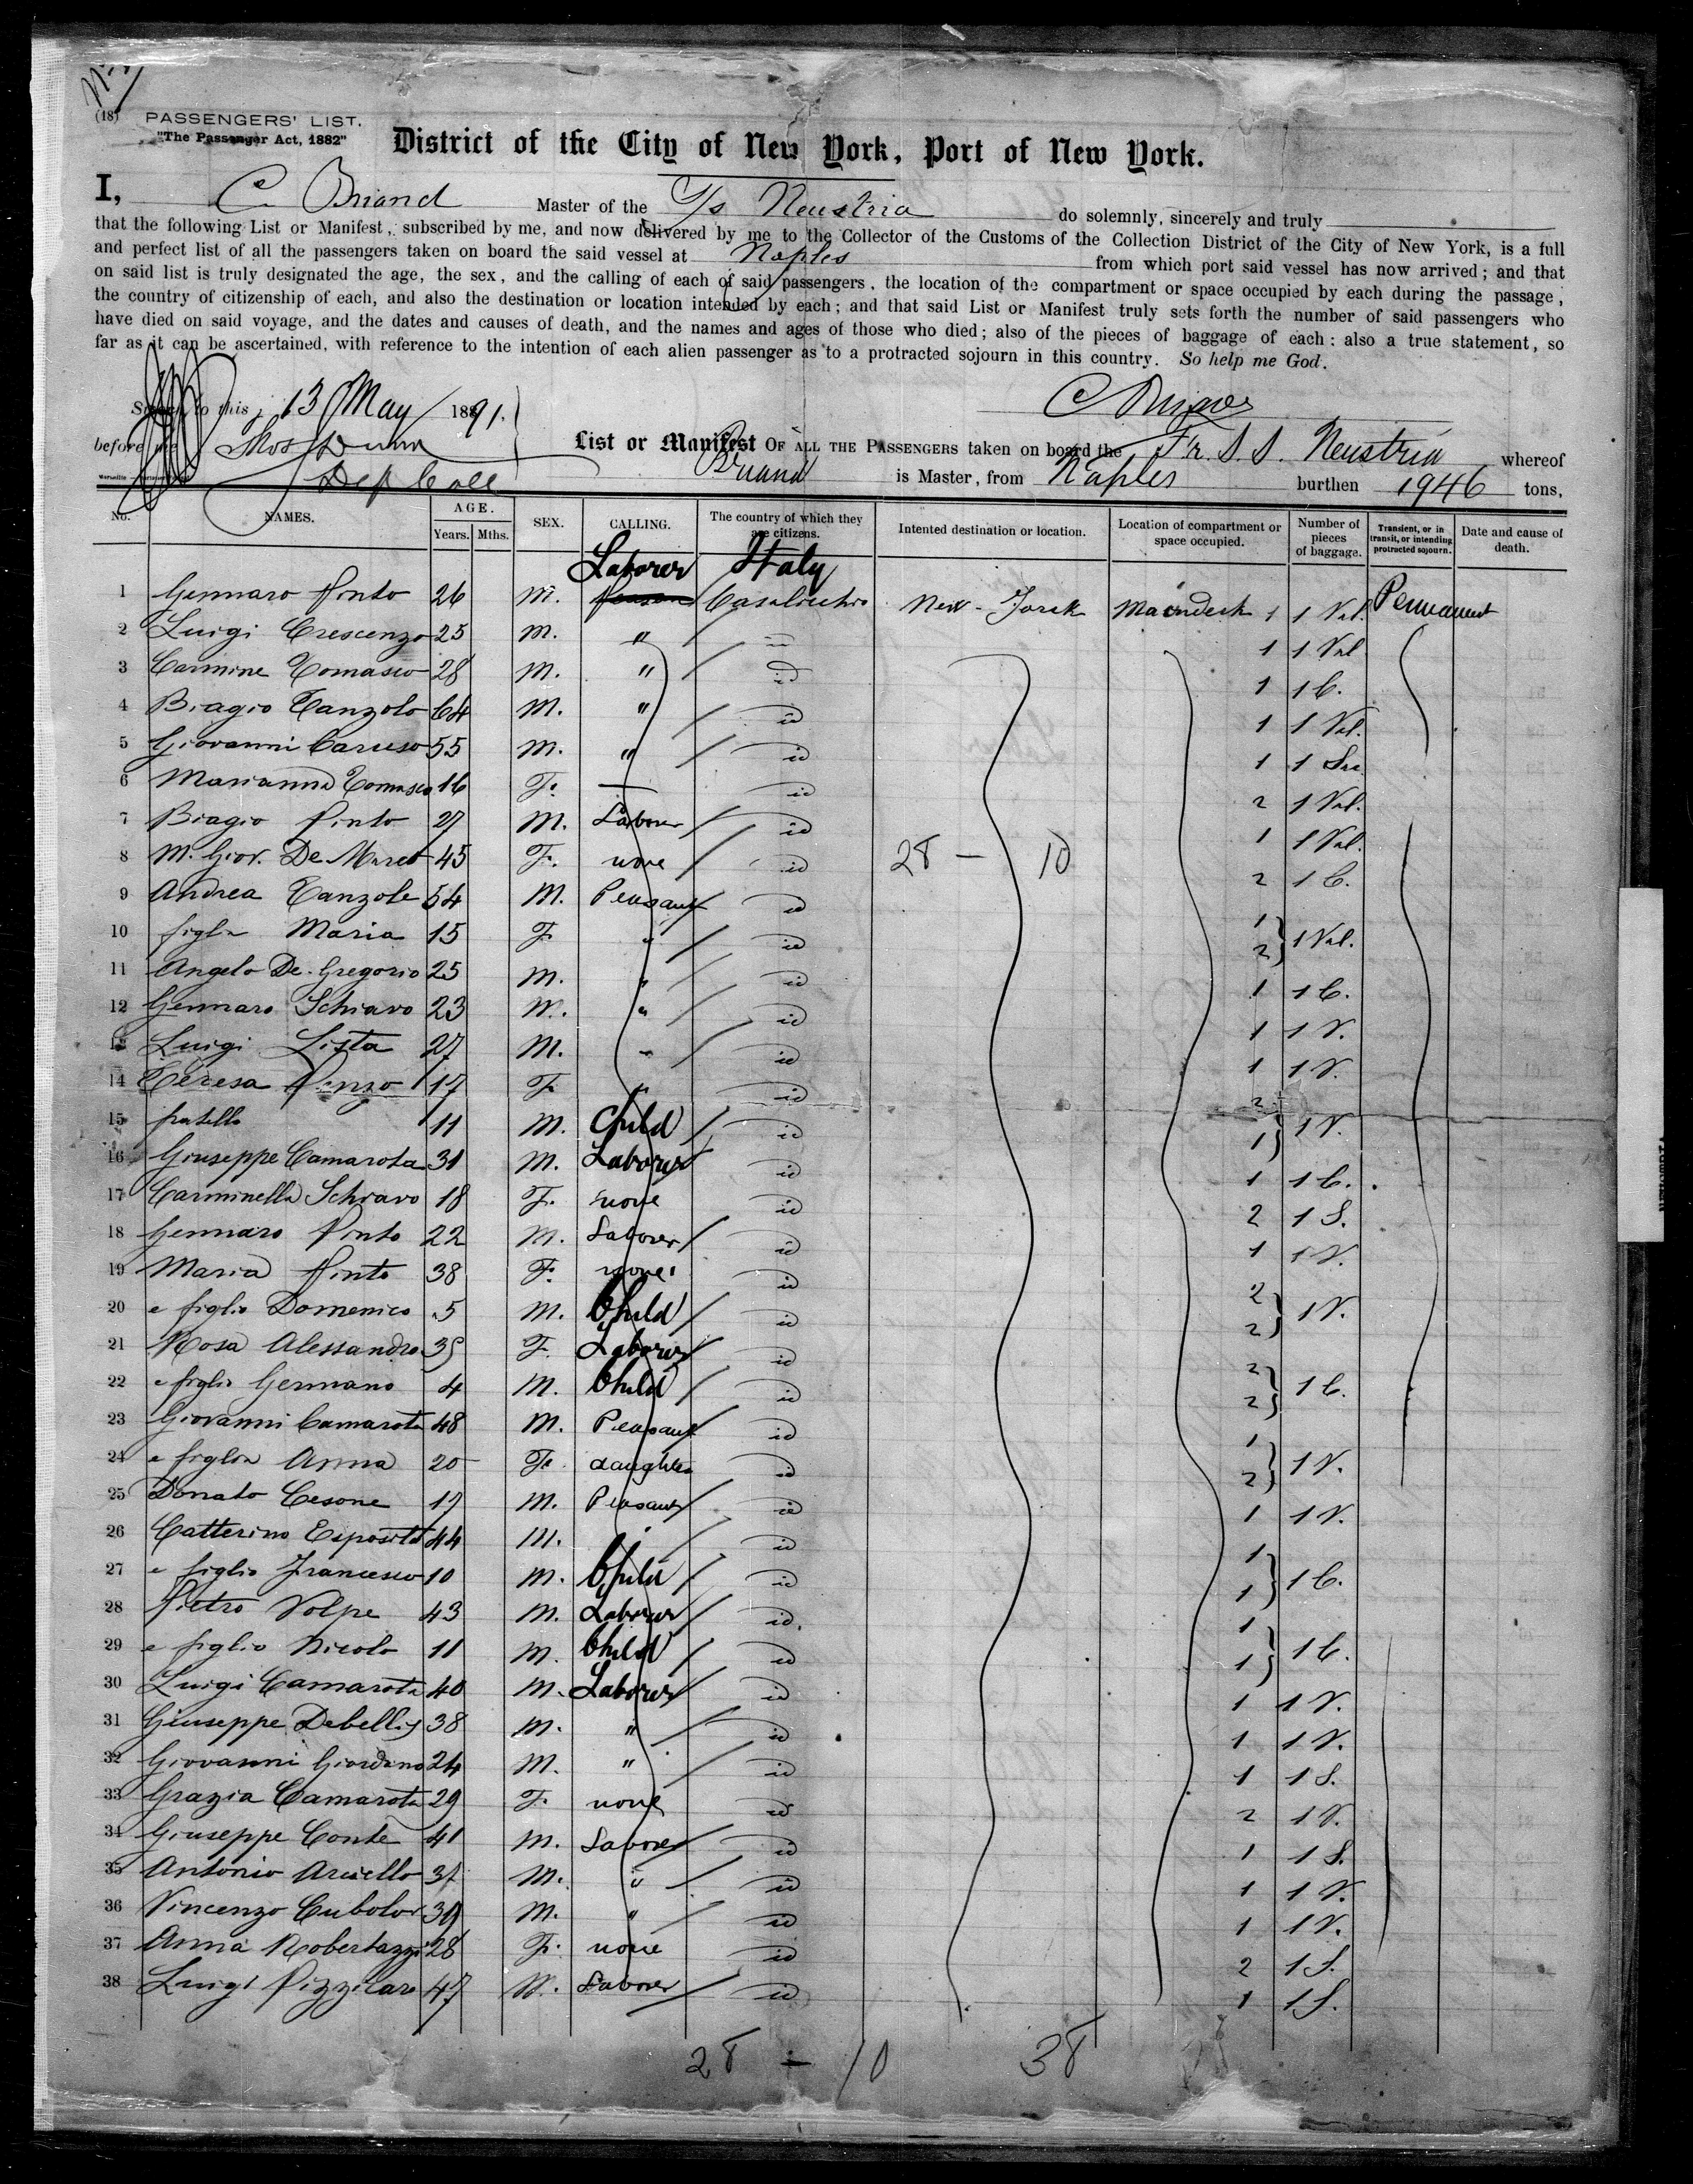 (18) PASSENGERS' LIST.
"The Passenger Act, 1882"
District of the City of New York, Port of New York.
I, C. Briand Master of the S/s Neustria do solemnly, sincerely and truly
that the following List or Manifest, subscribed by me, and now delivered by me to the Collector of the Customs of the Collection District of the City of New York, is a full
and perfect list of all the passengers taken on board the said vessel at Naples from which port said vessel has now arrived; and that
on said list is truly designated the age, the sex, and the calling of each of said passengers, the location of the compartment or space occupied by each during the passage,
the country of citizenship of each, and also the destination or location intended by each; and that said List or Manifest truly sets forth the number of said passengers who
have died on said voyage, and the dates and causes of death, and the names and ages of those who died; also of the pieces of baggage of each: also a true statement, so
far as it can be ascertained, with reference to the intention of each alien passenger as to a protracted sojourn in this country. So help me God.
Sworn to this 13 May 1891.
before me Thos Dunn
Dep Coll
List or Manifest OF ALL THE PASSENGERS taken on board the Fr. S. S. Neustria whereof
Briand is Master, from Naples burthen 1946 tons,
No. NAMES. AGE. Years. Mths. SEX. CALLING. The country of which they are citizens. Intented destination or location. Location of compartment or space occupied. Number of pieces of baggage. Transient, or in transit, or intending protracted sojourn. Date and cause of death.
Laborer Italy
1 Gennaro Pinto 26 M. Casalicchio New-Jorck Maindeck 1 1 Val. Permanent
2 Luigi Crescenzo 25 M. " 1 1 Val
3 Carmine Tomasco 28 M. " id 1 1 C.
4 Biagio Tanzolo 64 M. " id 1 1 Val.
5 Giovanni Caruso 55 M. " id 1 1 Sac
6 Marianna Tomasco 16 F. — id 2 1 Val.
7 Biagio Pinto 27 M. Laborer id 1 1 Val.
8 M. Giov. De Marco 45 F. none id 28 — 10 2 1 C.
9 Andrea Tanzole 54 M. Peasant id 1
10 figlia Maria 15 F. " id 2 1 Val.
11 Angelo De Gregorio 25 M. " id 1 1 C.
12 Gennaro Schiavo 23 M. " id 1 1 V.
13 Luigi Lista 27 M. " id 1 1 V.
14 Teresa Penzo 17 F. " id 2
15 fratello 11 M. Child id 1 1 V.
16 Giuseppe Camarota 31 M. Laborer id 1 1 C.
17 Carminella Schiavo 18 F. none id 2 1 S.
18 Gennaro Pinto 22 M. Laborer id 1 1 V.
19 Maria Pinto 38 F. none id 2
20 e figlio Domenico 5 M. Child id 2 1 V.
21 Rosa Alessandro 35 F. Laborer id 2
22 e figlio Germano 4 M. Child id 2 1 C.
23 Giovanni Camarota 48 M. Peasant id 1
24 e figlia Anna 20 Fe. daughter id 2 1 V.
25 Donato Cesone 17 M. Peasant id 1 1 V.
26 Catterino Esposito 44 M. id 1
27 e figlio Francesco 10 M. Child id 1 1 C.
28 Pietro Volpe 43 M. Laborer id. 1
29 e figlio Nicolo 11 M. Child id 1 1 C.
30 Luigi Camarota 40 M. Laborer id 1 1 V.
31 Giuseppe Debellis 38 M. " id 1 1 V.
32 Giovanni Giordano 24 M. " id 1 1 S.
33 Grazia Camarota 29 F. none id 2 1 V.
34 Giuseppe Conte 41 M. Laborer id 1 1 S.
35 Antonio 37 M. " id 1 1 V.
36 Vincenzo M. " id 1 1 V.
37 Anna Robertazzi 28 F. none id 2 1 S.
38 Luigi Pizzilaro 47 M. Laborer id 1 1 S.
28 — 10 38